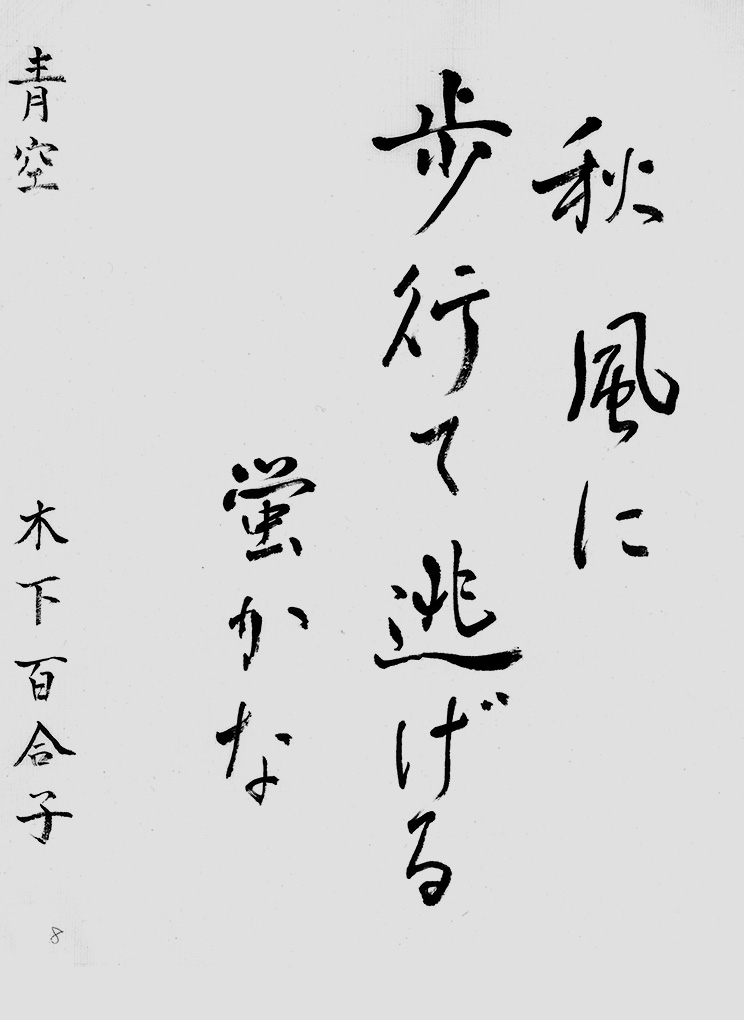 秋風に
歩行て逃げる
蛍かな
青空
木下百合子
8